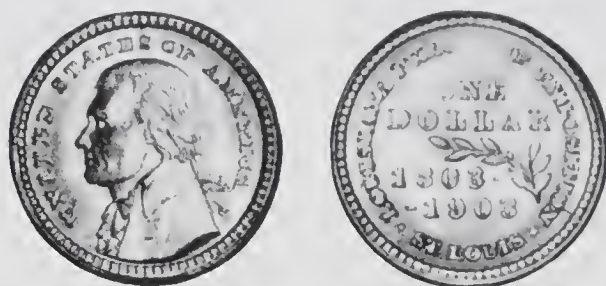 UNITED STATES OF AMERICA
LOUISIANA PURCHASE EXPOSITION
ONE
DOLLAR
1803-
-1903
ST. LOUIS